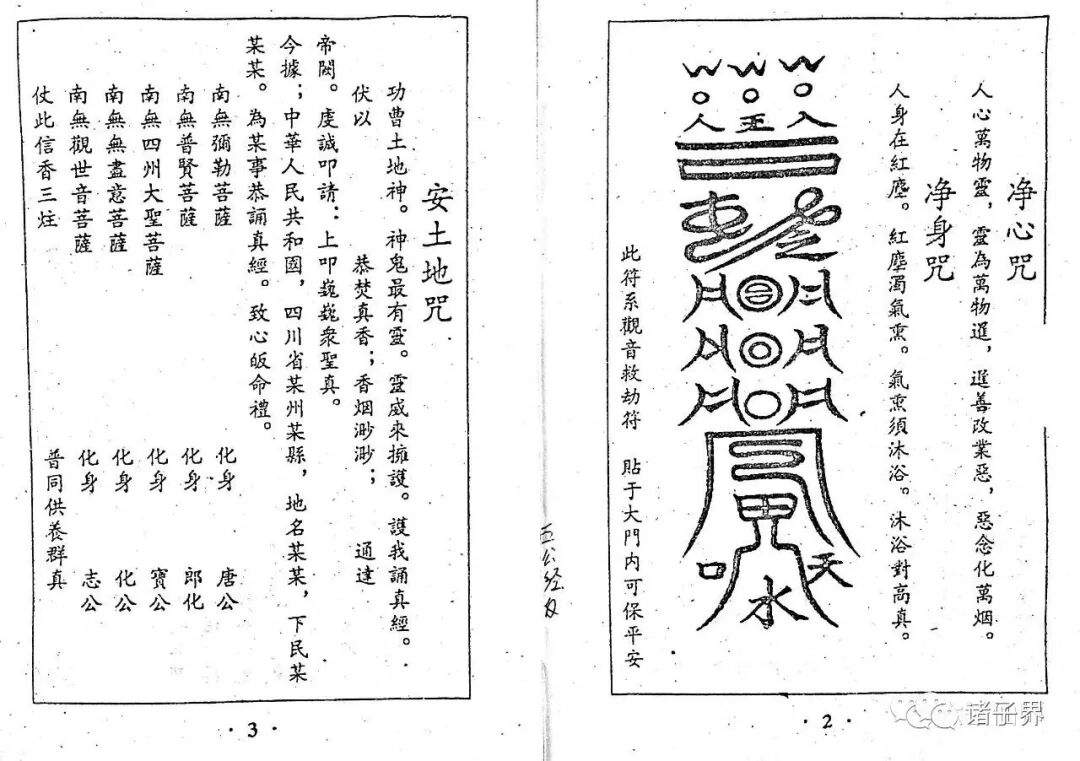 净心咒
人心萬物靈，靈為萬物選，選善改業惡，惡念化萬烟。
净身咒
人身在紅塵。紅塵濁氣熏。氣熏須沐浴。沐浴對高真。
人 王 入
甲
口 水 天
此符系觀音救劫符 貼于大門内可保平安
·2·
五公经
安土地咒
功曹土地神。神鬼最有靈。靈威來擁護。護我誦真經。
伏以 恭焚真香；香烟渺渺； 通達
帝闕。虔誠叩請：上叩巍巍衆聖真。
今據；中華人民共和國，四川省某州某縣，地名某某，下民某
某某。為某事恭誦真經。致心皈命禮。
南無彌勒菩薩 化身 唐公
南無普賢菩薩 化身 郎化
南無四州大聖菩薩 化身 寶公
南無無盡意菩薩 化身 化公
南無觀世音菩薩 化身 志公
仗此信香三炷 普同供養群真
·3·
诸子界